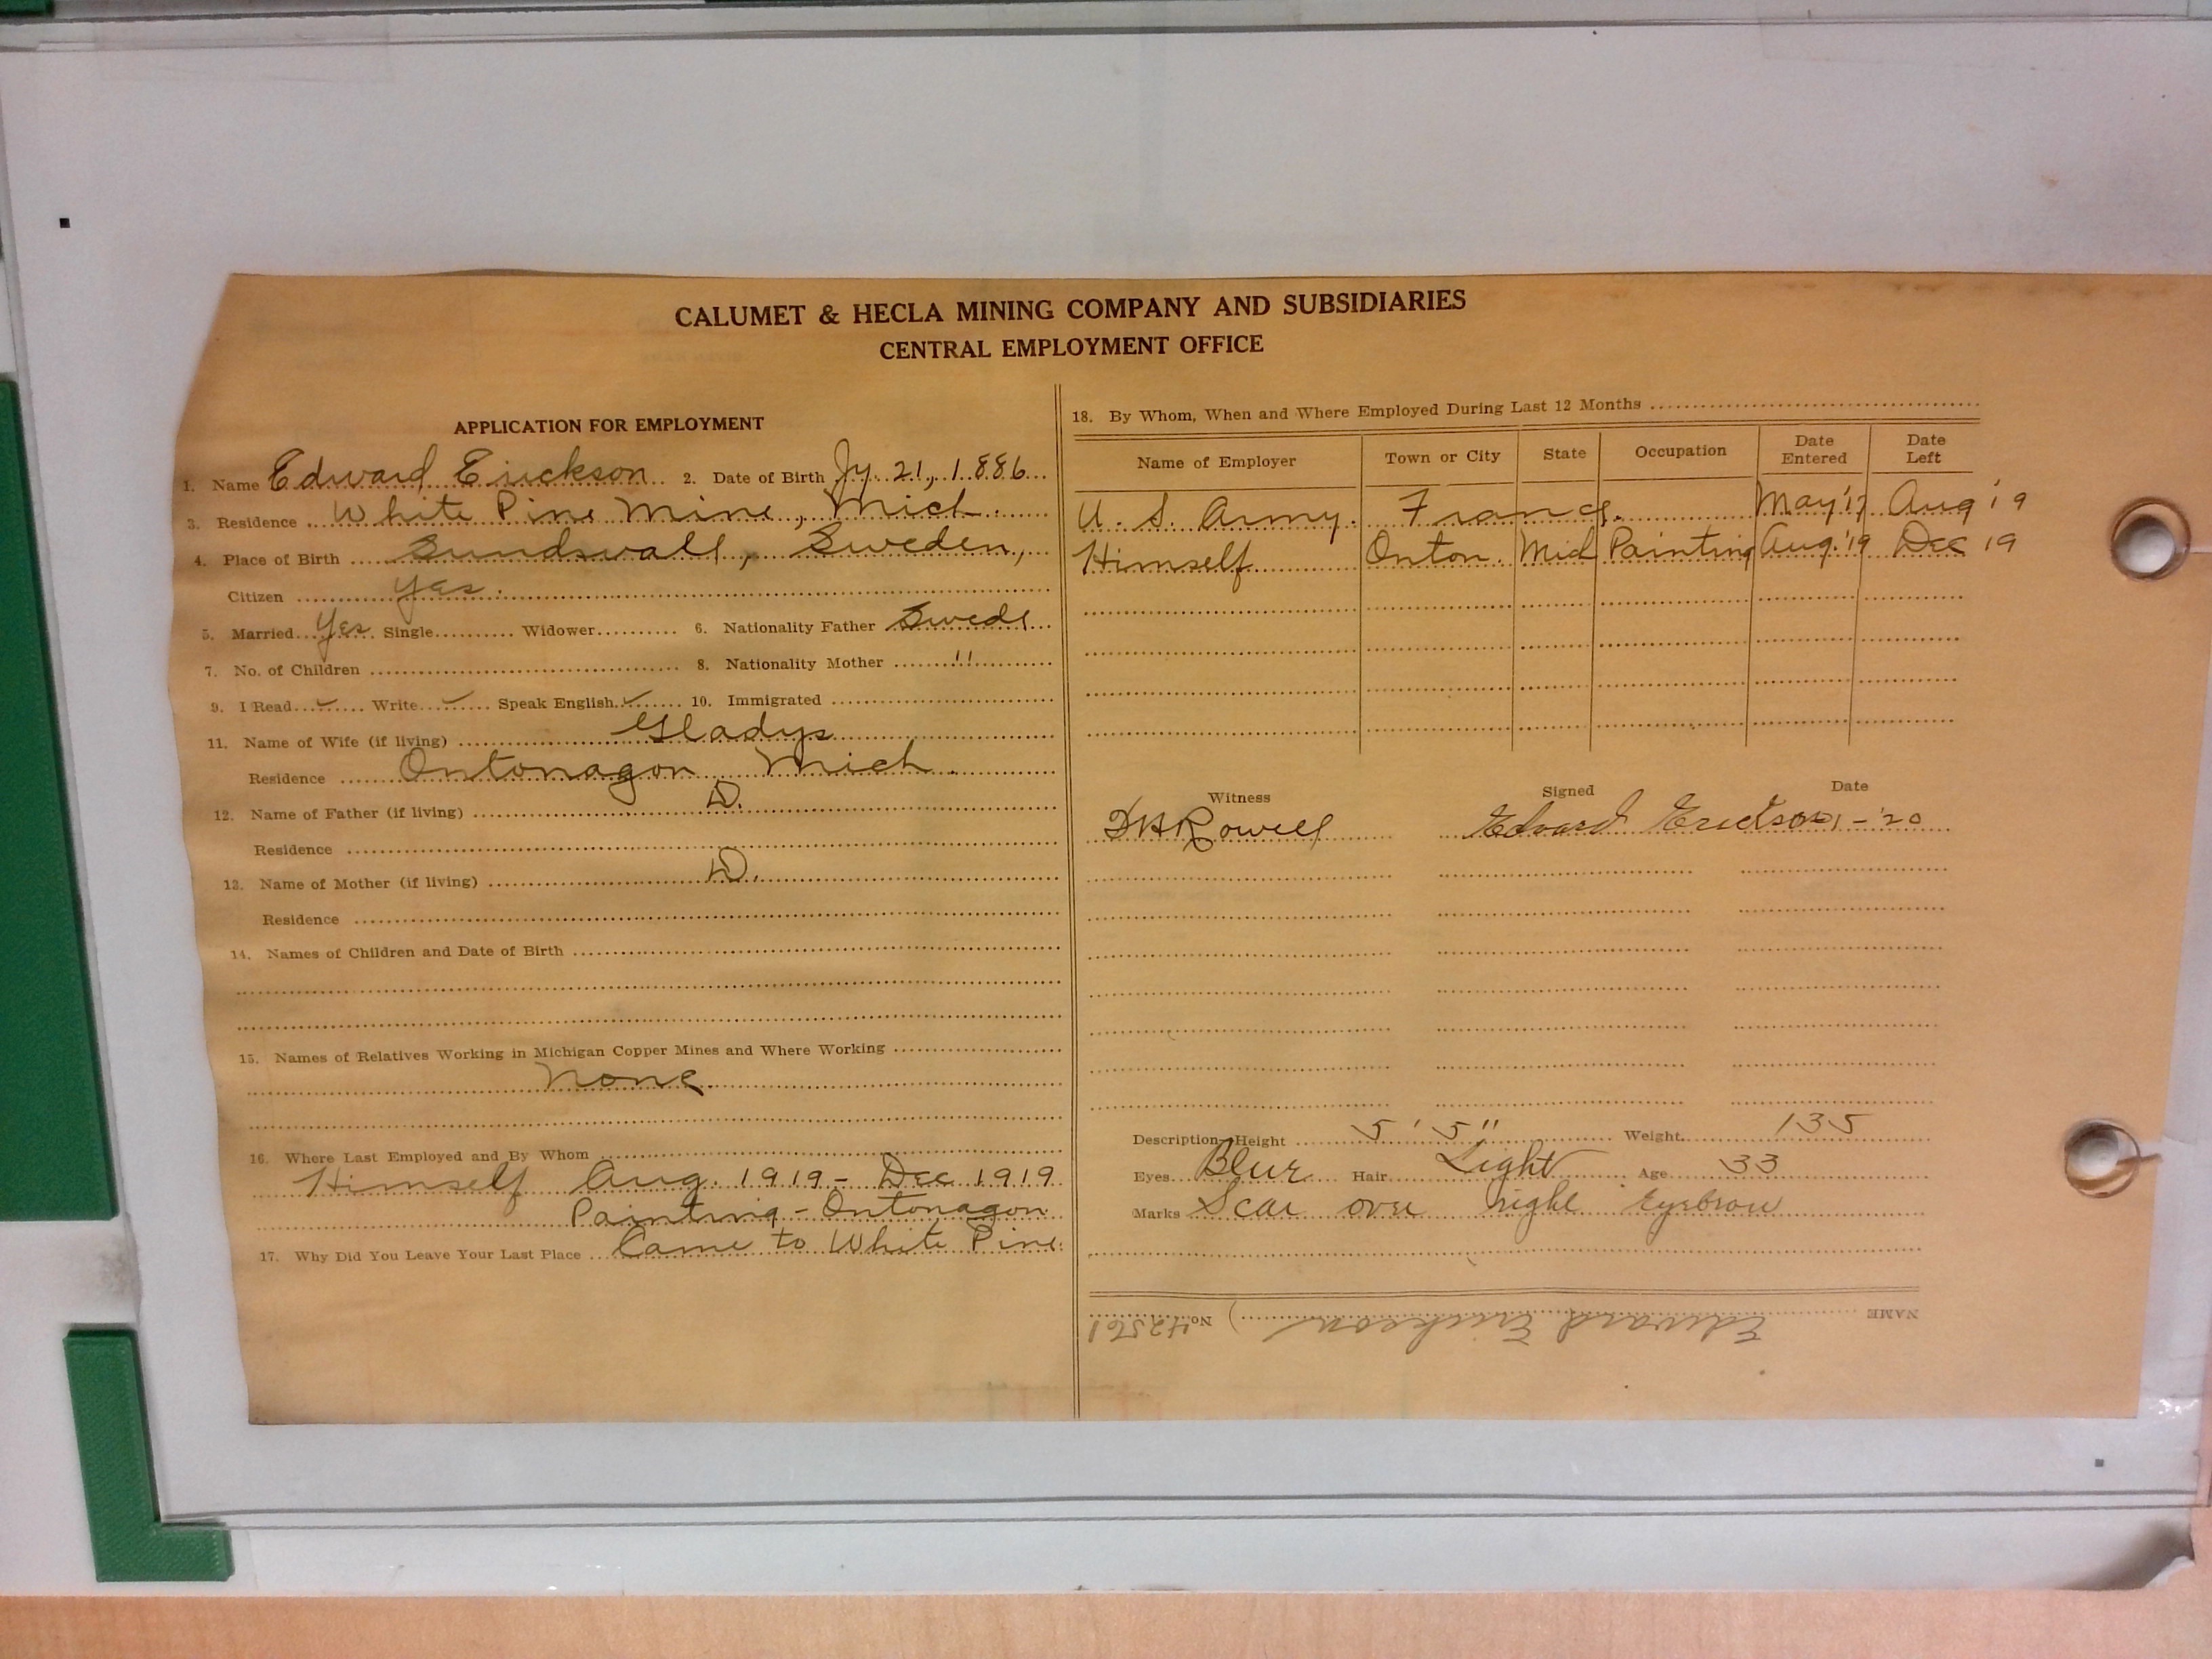 CALUMET & HECLA MINING COMPANY AND SUBSIDIARIES
CENTRAL EMPLOYMENT OFFICE
APPLICATION FOR EMPLOYMENT
1. Name Edward Erickson 2. Date of Birth Jy. 21, 1886
3. Residence White Pine Mine, Mich.
4. Place of Birth Sundsvall, Sweden,
Citizen Yes.
5. Married Yes Single Widower 6. Nationality Father Swede
7. No. of Children 8. Nationality Mother "
9. I Read ✓ Write ✓ Speak English ✓ 10. Immigrated
11. Name of Wife (if living) Gladys
Residence Ontonagon Mich.
12. Name of Father (if living) D.
Residence
13. Name of Mother (if living) D.
Residence
14. Names of Children and Date of Birth
15. Names of Relatives Working in Michigan Copper Mines and Where Working
None
16. Where Last Employed and By Whom
Himself Aug. 1919 - Dec 1919
Painting - Ontonagon
17. Why Did You Leave Your Last Place Came to White Pine
18. By Whom, When and Where Employed During Last 12 Months
Name of Employer Town or City State Occupation Date Entered Date Left
U. S. Army. France. May '17 Aug '19
Himself Onton. Mich Painting Aug. '19 Dec 19
Witness Signed Date
Rowell Edward Erickson 1-'20
Description, Height 5' 5" Weight 135
Eyes Blue Hair Light Age 33
Marks Scar over right eyebrow
NAME Edward Erickson No. 42561